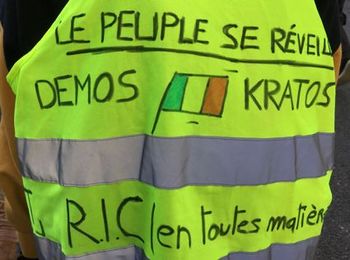 LE PEUPLE SE RÉVEIL
DEMOS KRATOS
R.I.C en toutes matière